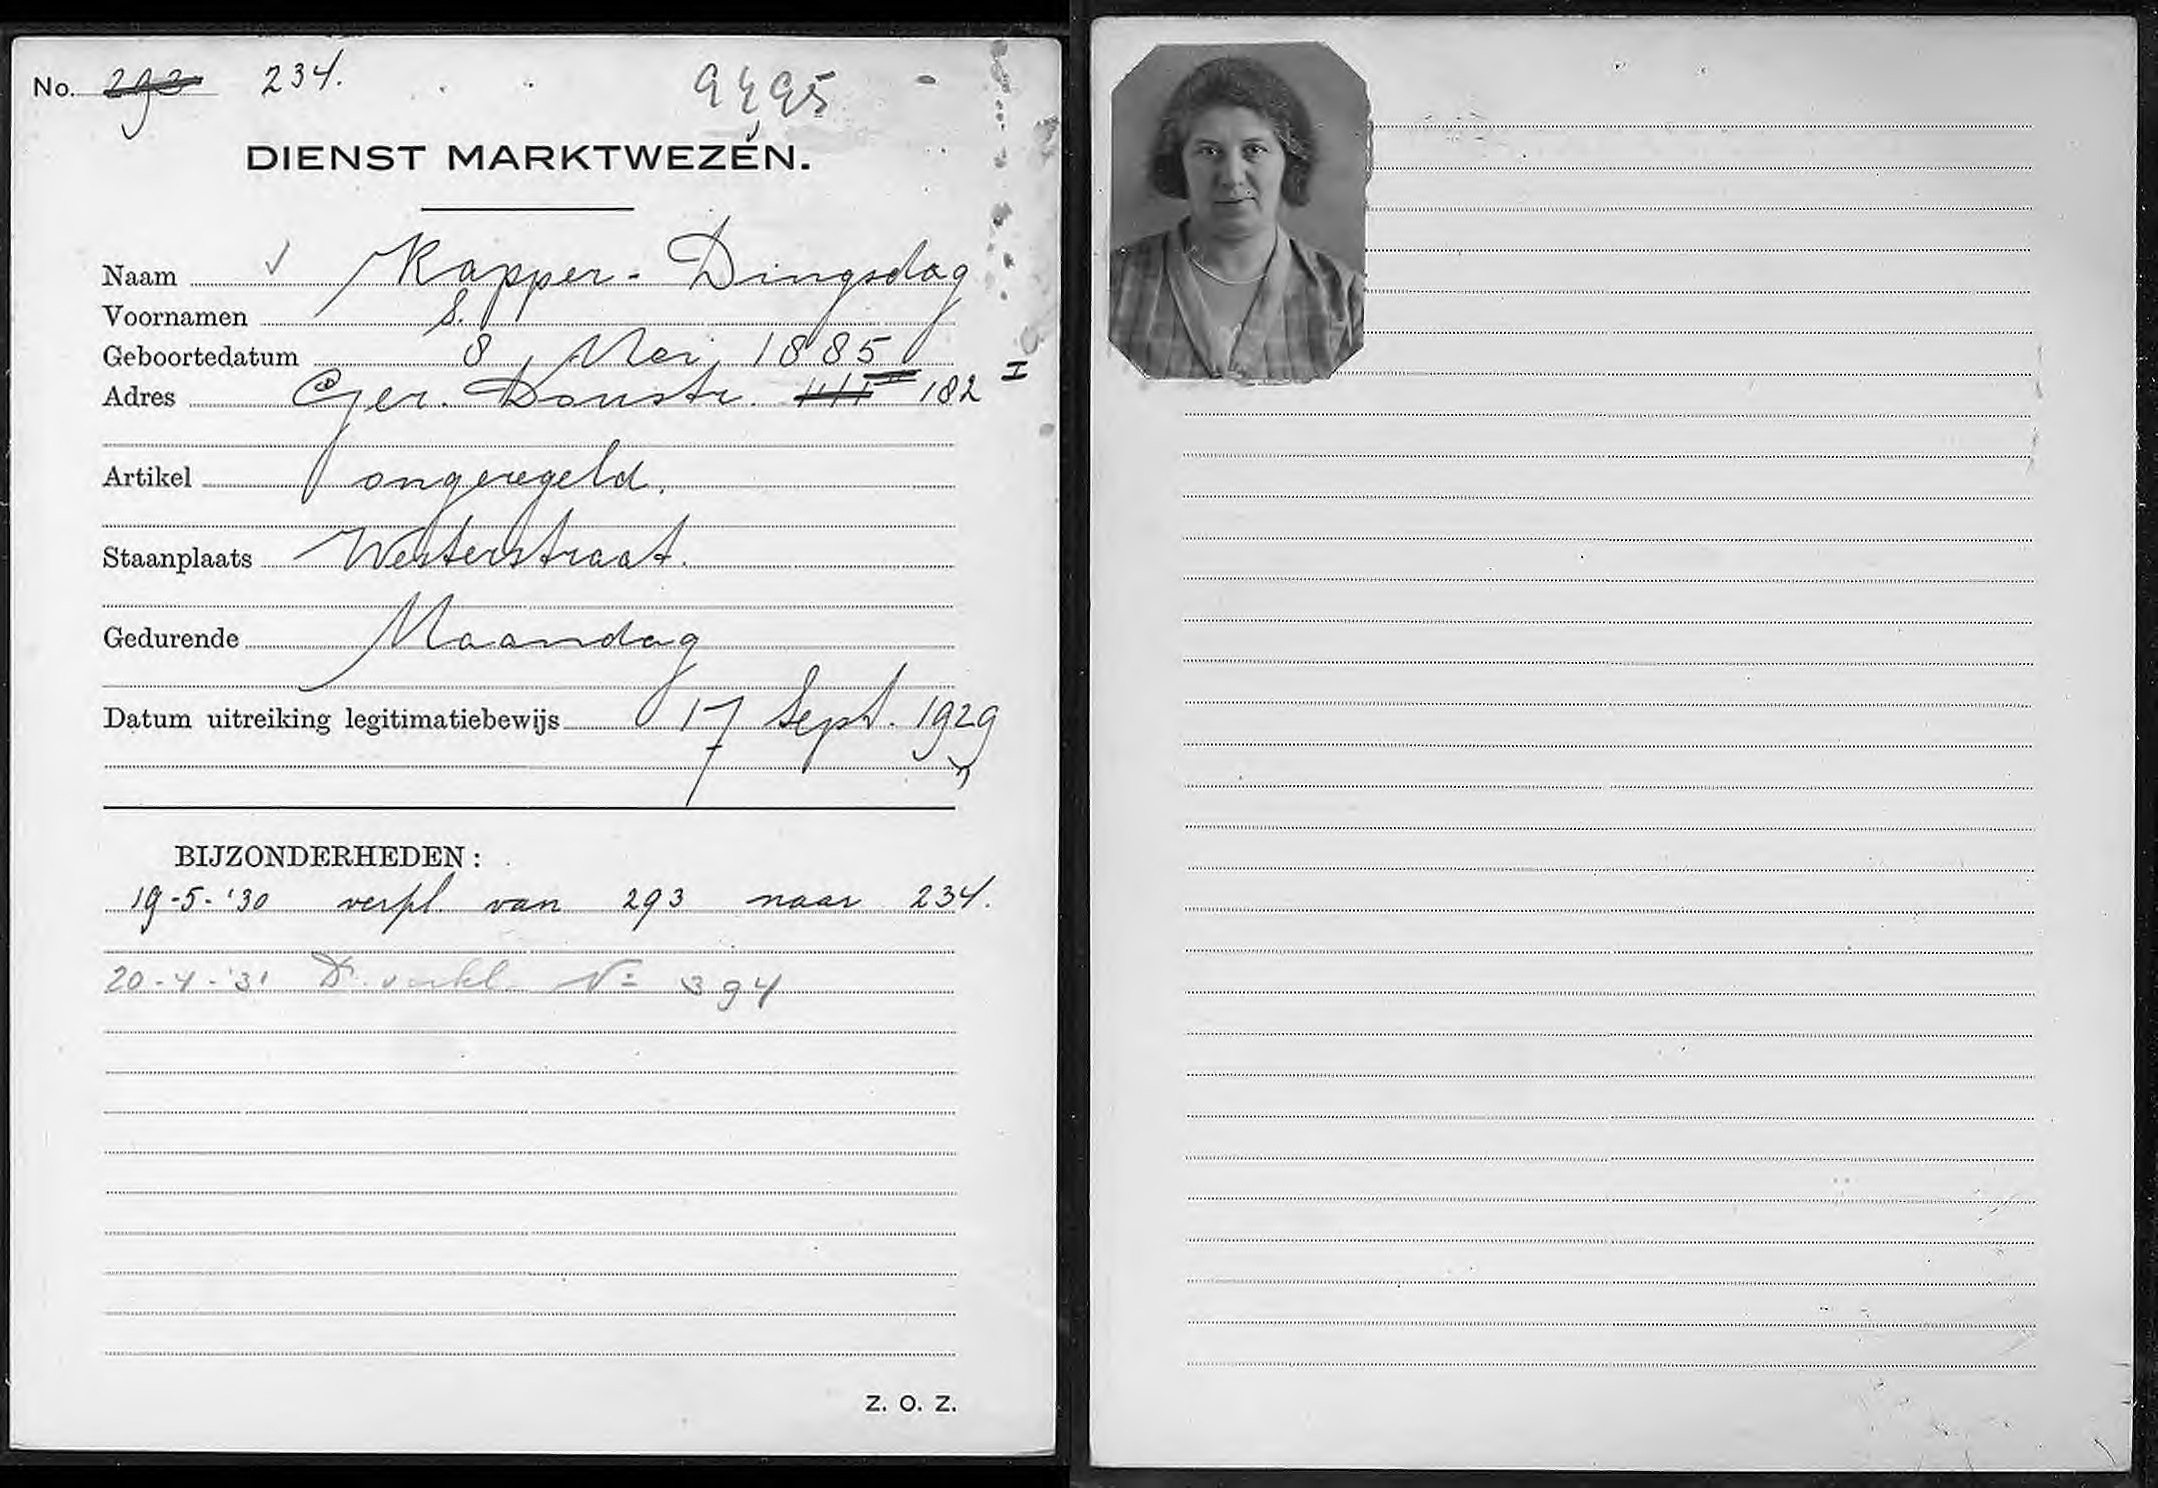 No. 293 234.
9495
DIENST MARKTWEZEN.
Naam Kapper - Dingsdag
Voornamen S.
Geboortedatum 8 Mei 1885
Adres Ger. Doustr. 111 II 182 I
Artikel ongeregeld.
Staanplaats Westerstraat.
Gedurende Maandag
Datum uitreiking legitimatiebewijs 17 Sept. 1929
BIJZONDERHEDEN:
19-5-'30 verpl. van 293 naar 234.
20-4-'31 Dr. verkl. No 394
Z. O. Z.